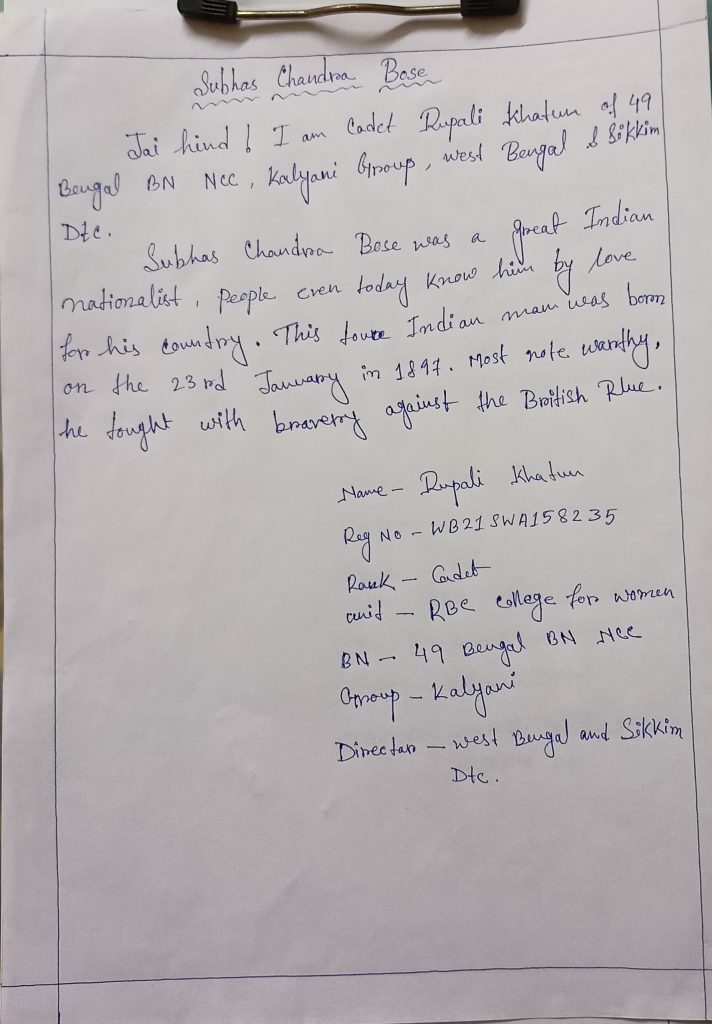 Subhas Chandra Bose
Jai hind! I am Cadet Rupali Khatun of 49
Bengal BN NCC, Kalyani Group, west Bengal & Sikkim
Dtc.
Subhas Chandra Bose was a great Indian
nationalist, people even today know him by love
for his country. This Indian man was born
on the 23 rd January in 1897. Most note warthy,
he fought with bravery against the British Rlue.
Name - Rupali Khatun
Reg No - WB21SWA158235
Rank - Cadet
unit - RBC college for women
BN - 49 Bengal BN NCC
Group - Kalyani
Director - west Bengal and Sikkim
Dtc.